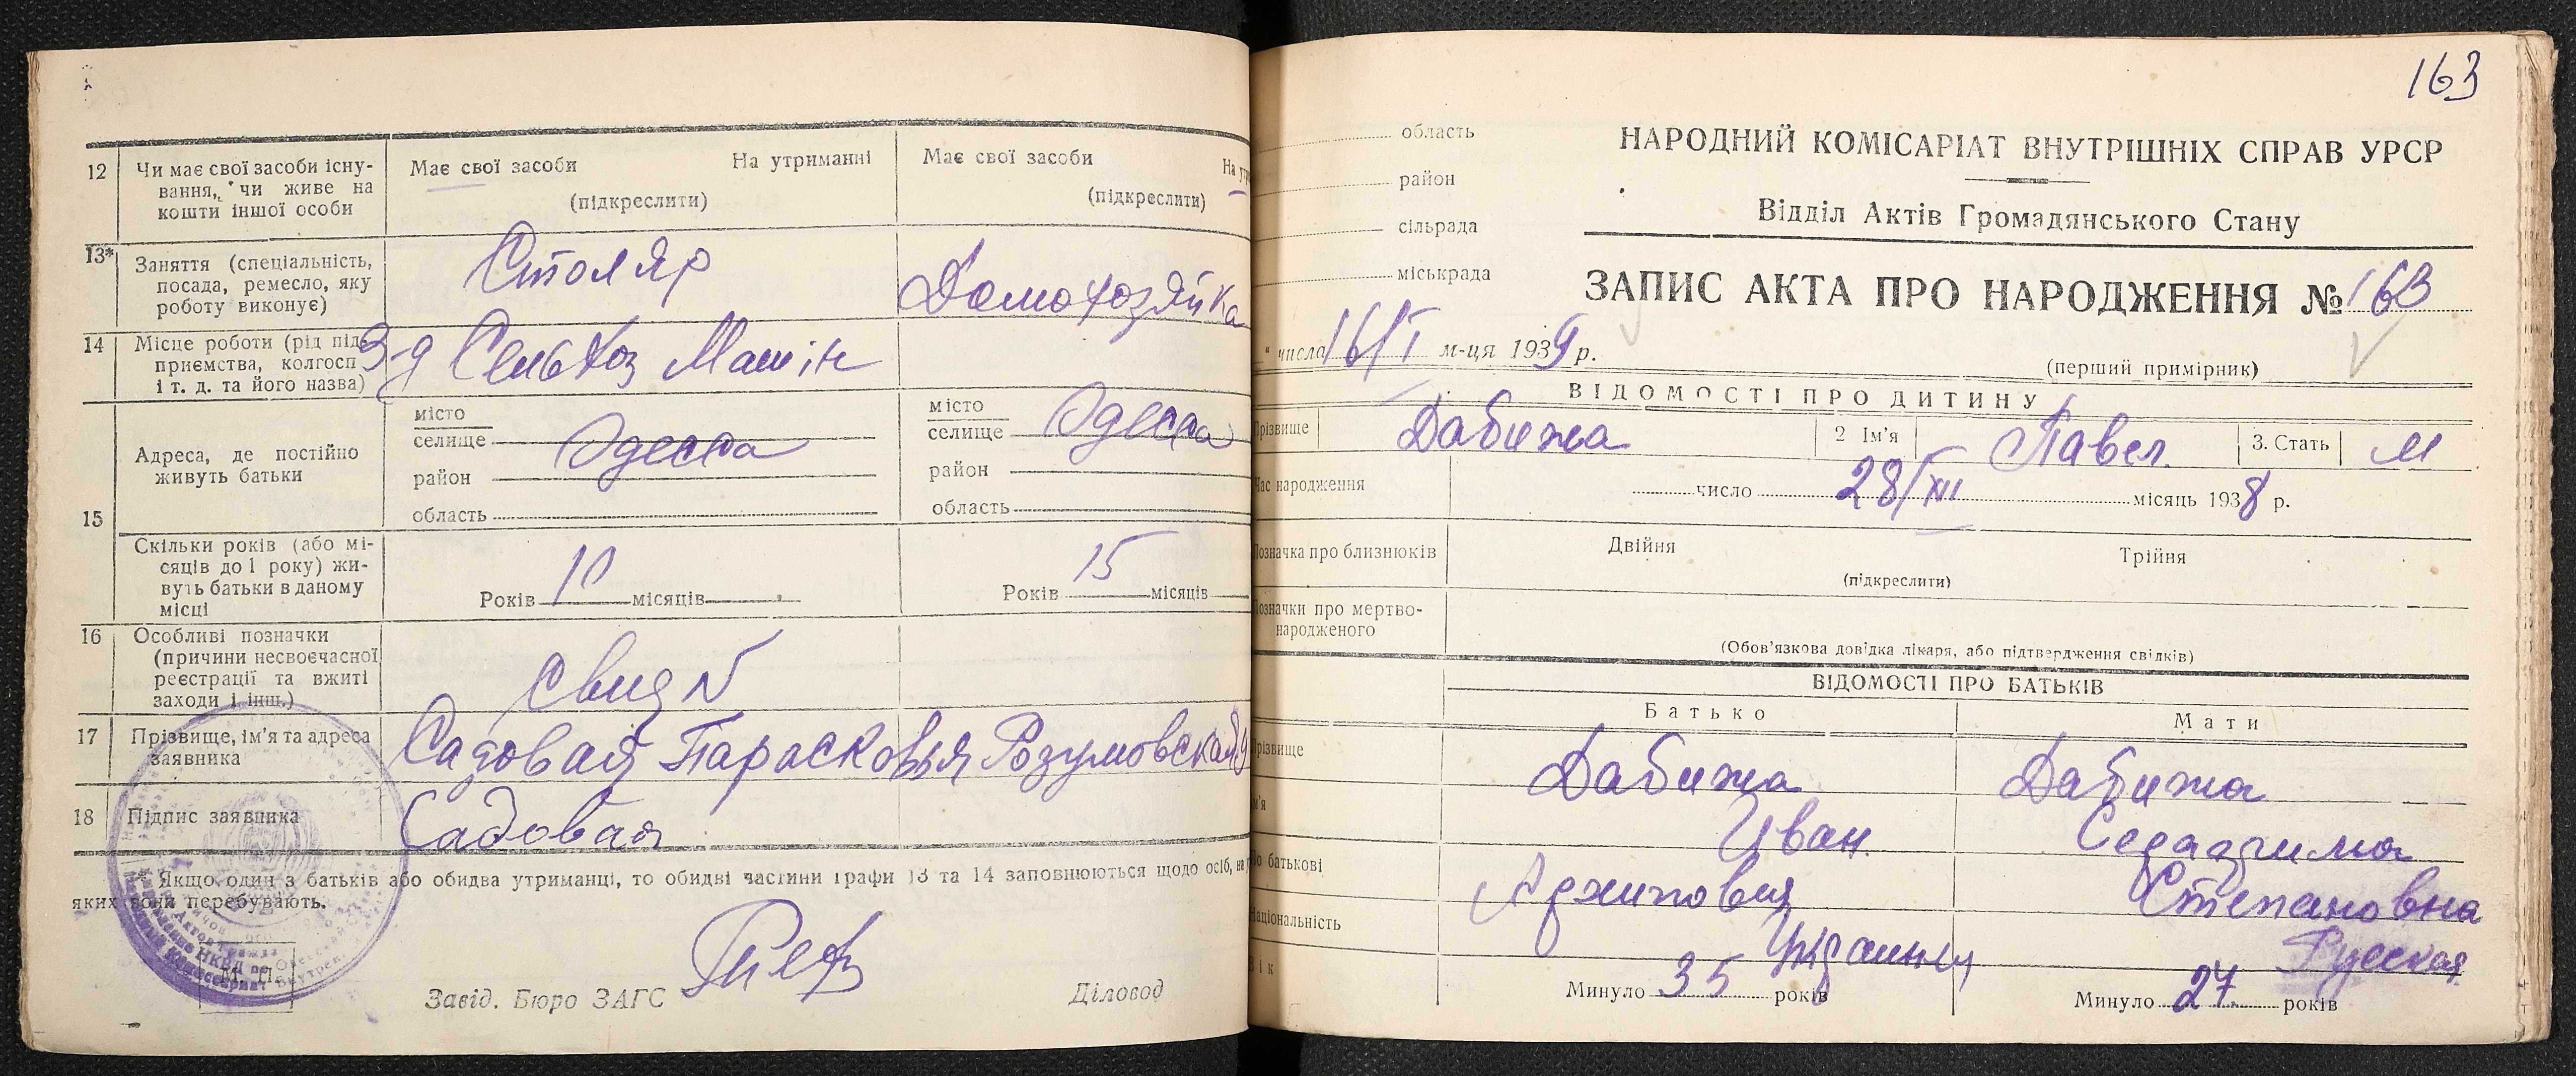 12 Чи має свої засоби існування, чи живе на кошти іншої особи
Має свої засоби На утриманні
(підкреслити)
Має свої засоби На
(підкреслити)
13* Заняття (спеціальність, посада, ремесло, яку роботу виконує)
Столяр
Домохозяйка
14 Місце роботи (рід підприємства, колгосп і т. д. та його назва)
З-д СельХоз Машін
15 Адреса, де постійно живуть батьки
місто
селище Одесса
район
область
місто
селище Одесса
район
область
Скільки років (або місяців до 1 року) живуть батьки в даному місці
Років 10 місяців
Років 15 місяців
16 Особливі позначки (причини несвоєчасної реєстрації та вжиті заходи і інш.)
Свид N
17 Прізвище, ім'я та адреса заявника
Садовая Парасковья Розумовская
18 Підпис заявника
Садовая
* Якщо один з батьків або обидва утриманці, то обидві частини графи 13 та 14 заповнюються щодо осіб, на
яких вони перебувають.
М. П.
Завід. Бюро ЗАГС
Діловод
163
область
район
сільрада
міськрада
НАРОДНИЙ КОМІСАРІАТ ВНУТРІШНІХ СПРАВ УРСР
Відділ Актів Громадянського Стану
ЗАПИС АКТА ПРО НАРОДЖЕННЯ № 163
" числа 16/I м-ця 1939 р.
(перший примірник)
ВІДОМОСТІ ПРО ДИТИНУ
Прізвище Дабижа 2 Ім'я Павел. 3. Стать М
Час народження число 28/XII місяць 1938 р.
Позначка про близнюків Двійня Трійня
(підкреслити)
Позначки про мертвонародженого
(Обов'язкова довідка лікаря, або підтвердження свідків)
ВІДОМОСТІ ПРО БАТЬКІВ
Батько Мати
Прізвище Дабижа Дабижа
Ім'я Иван.
По батькові Степановна
Національність Украинец Русская
Вік Минуло 35 років Минуло 27 років